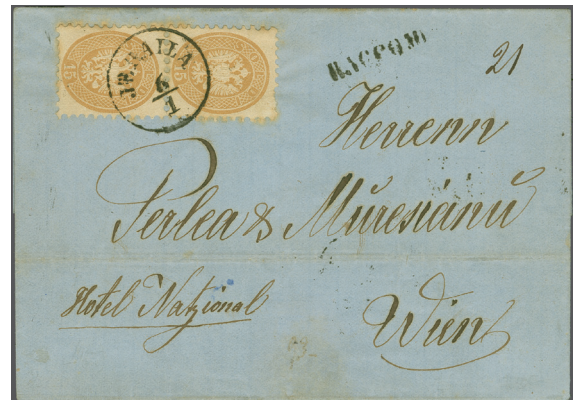 15 15
IBRAILA
6/1
RACCOM
21
Herrenn
Perlea & Muresianŭ
Hotel Natzional
Wien